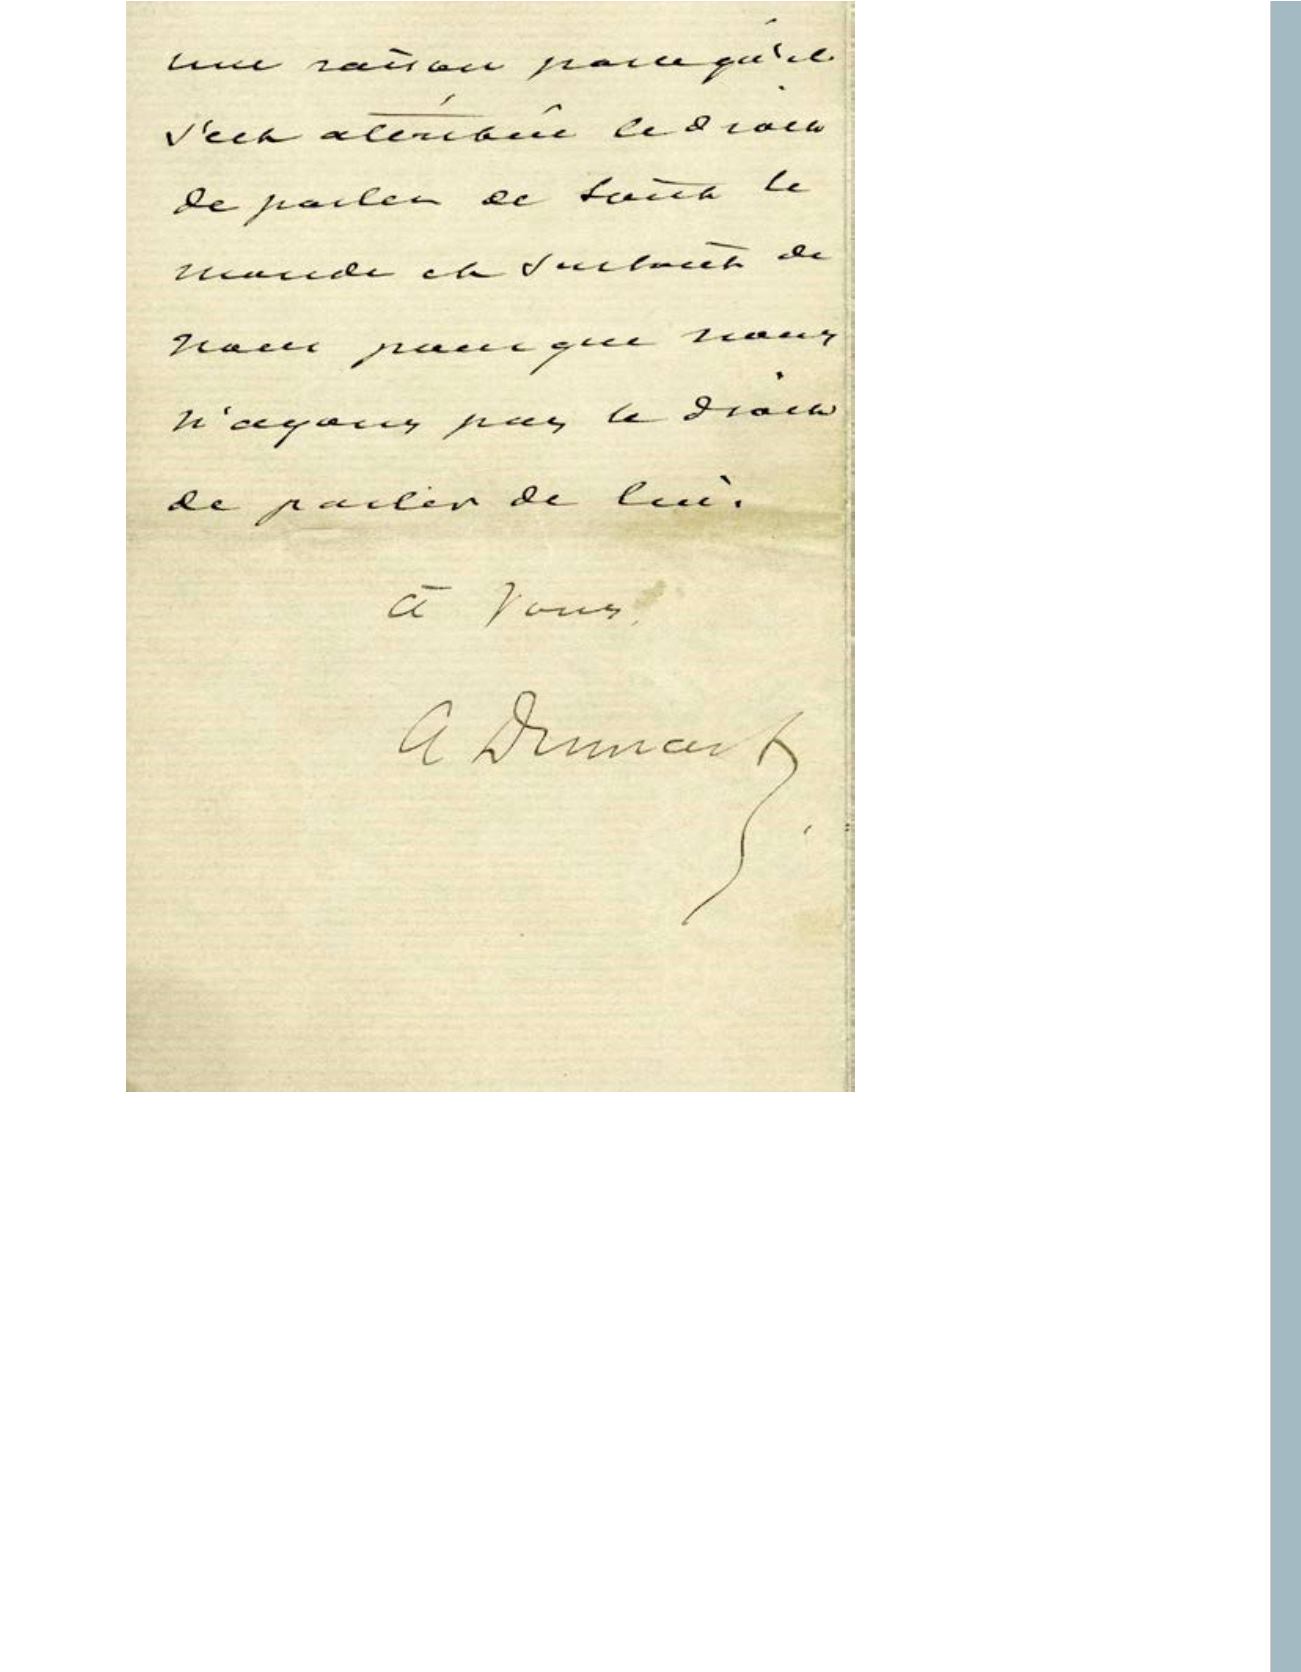 une raison parce qu'il
s'est attribué le droit
de parler de tout le
monde et surtout de
nous pour que nous
n'ayons pas le droit
de parler de lui.
à vous.
A Dumas f